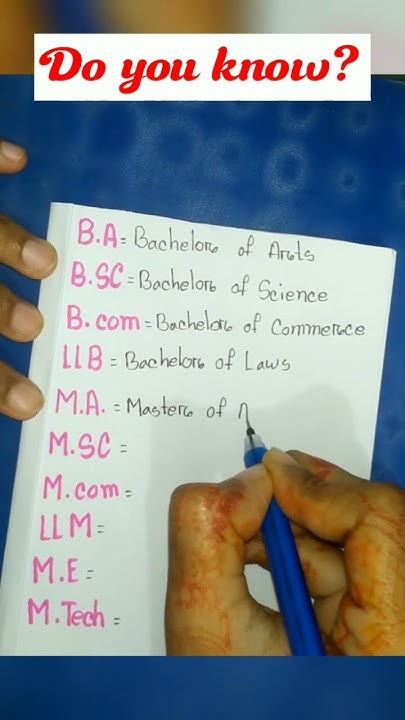 Do you know?
B.A = Bachelor of Arts
B.SC = Bachelor of Science
B.com = Bachelor of Commerce
LLB = Bachelor of Laws
M.A. = Master of
M.SC =
M.com =
LLM =
M.E =
M.Tech =